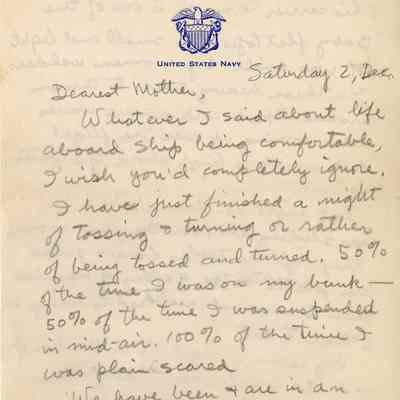 UNITED STATES NAVY
Saturday 2, Dec.
Dearest Mother,
Whatever I said about life
aboard ship being comfortable,
I wish you'd completely ignore.
I have just finished a night
of tossing & turning or rather
of being tossed and turned. 50%
of the time I was on my bunk —
50% of the time I was suspended
in mid-air. 100% of the time I
was plain scared
We have been & are in an